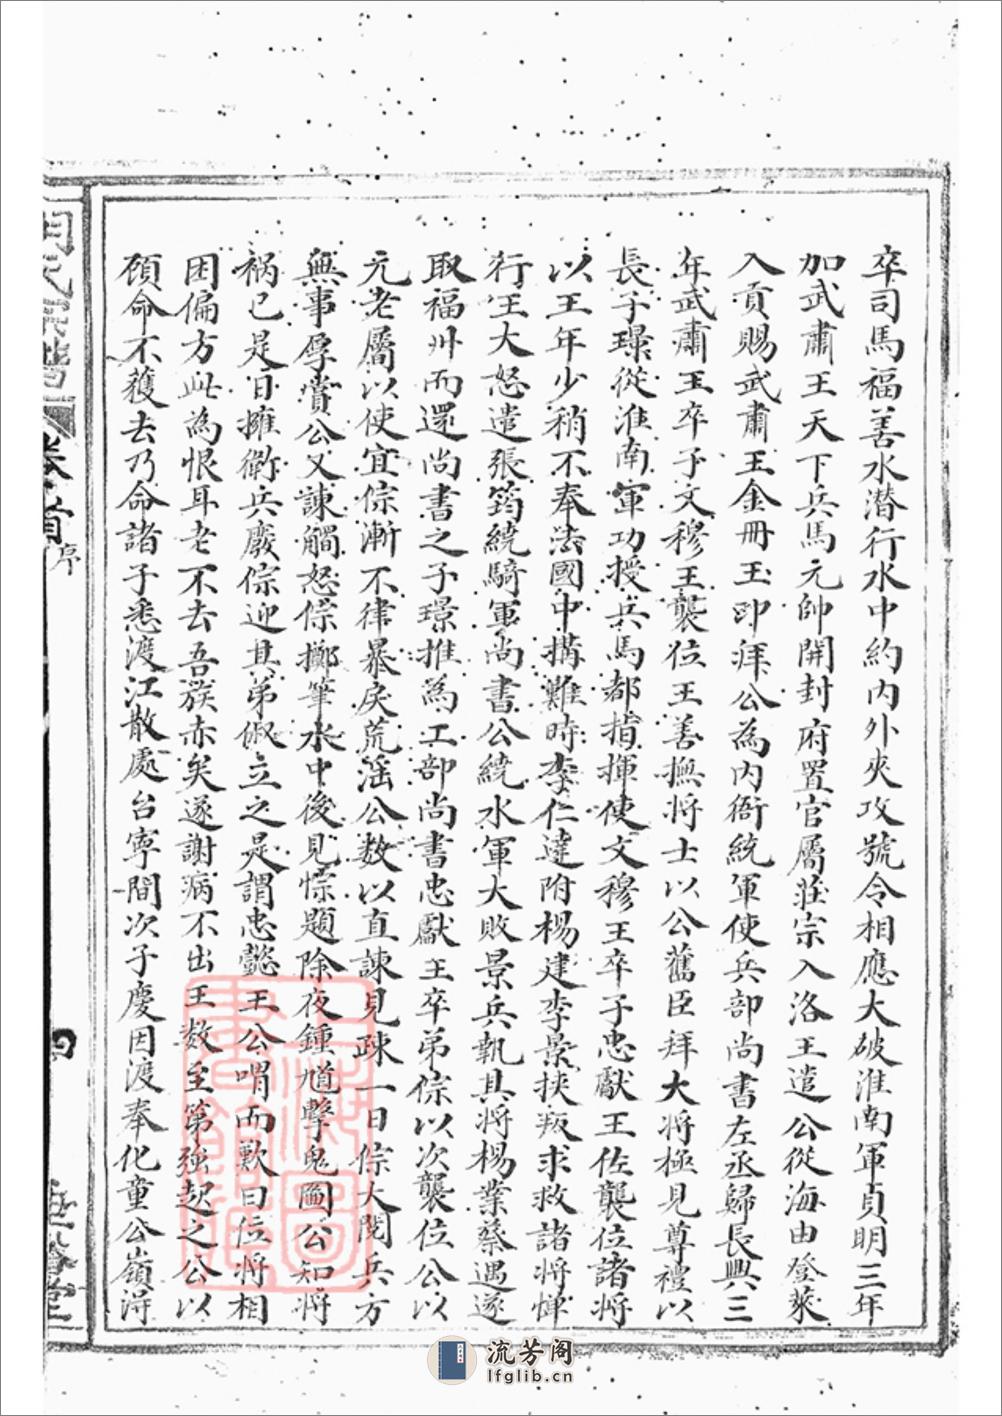 卒司馬福善水潜行水中約内外夾攻號令相應大破淮南軍貞明三年
加武肅王天下兵馬元帥開封府置官屬莊宗入洛王遣公從海由登萊
入貢賜武肅王金冊玉印拜公為内衙統軍使兵部尚書左丞歸長興三
年武肅王卒子文穆王襲位王善撫將士以公舊臣拜大將極見尊禮以
長子璟從淮南軍功授兵馬都指揮使文穆王卒子忠獻王佐襲位諸將
以王年少稍不奉法國中搆難時李仁達附楊建李景挾叛求救諸將憚
行王大怒遣張筠統騎軍尚書公統水軍大敗景兵執其將楊業蔡遇遂
取福州而還尚書之子璟推為工部尚書忠獻王卒弟倧以次襲位公以
元老屬以使宜倧漸不律暴戾荒滛公数以直諫見疎一日倧大閱兵方
無事厚賞公又諫觸怒倧擲筆水中後見悰題除夜鍾馗擊鬼圖公知將
禍已是日擁衛兵廢倧迎其弟俶立之是謂忠懿王公喟而歎曰位將相
困偏方此為恨耳老不去吾族赤矣遂謝病不出王数至第強起之公以
頋命不獲去乃命諸子悉渡江散處台寧間次子慶因渡奉化童公嶺淂
卷首
序
四
流芳阁
lfglib.cn